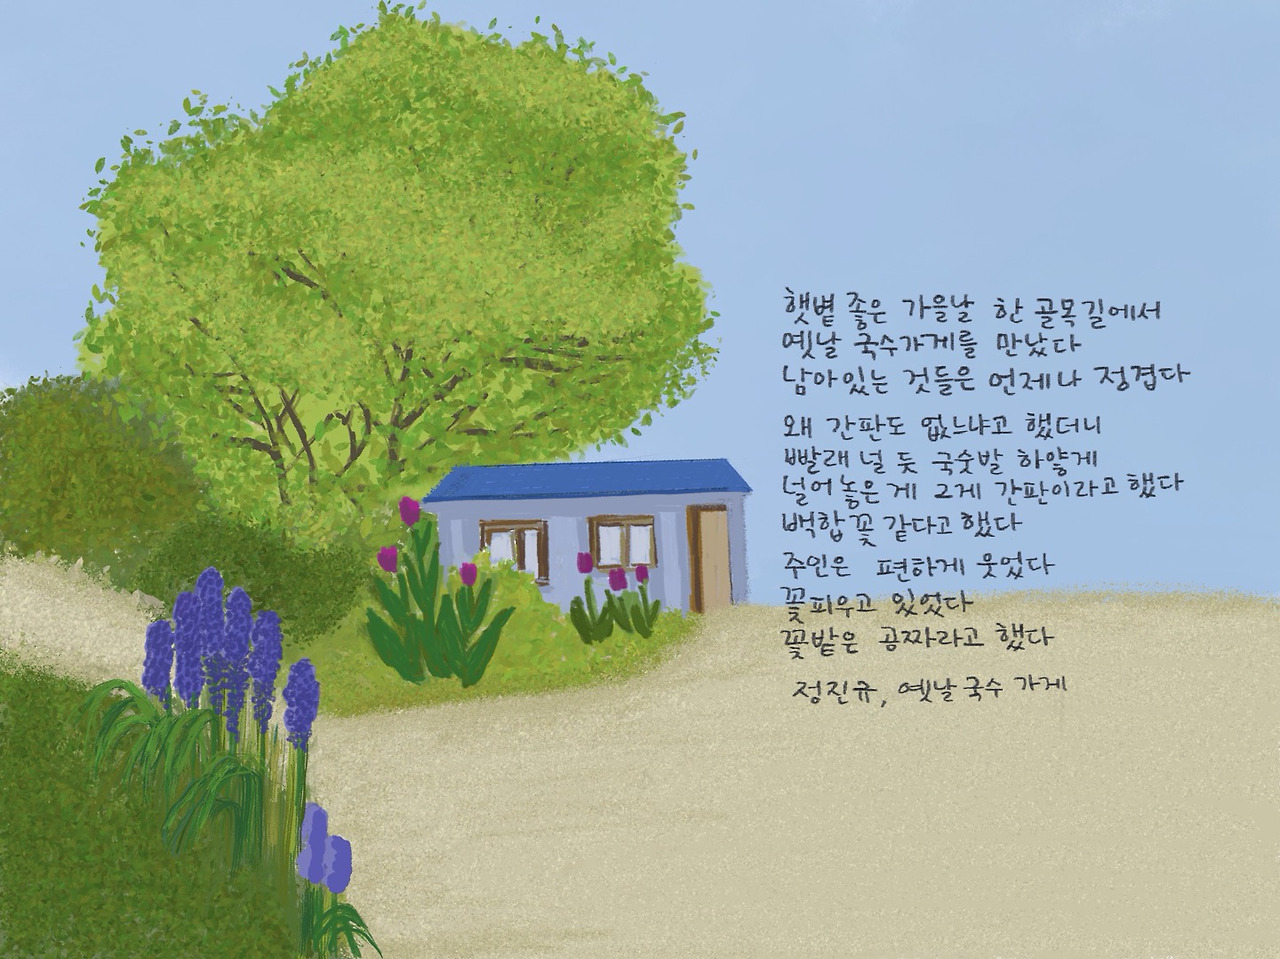 햇볕 좋은 가을날 한 골목길에서
옛날 국수가게를 만났다
남아있는 것들은 언제나 정겹다
왜 간판도 없느냐고 했더니
빨래 널 듯 국숫발 하얗게
널어놓은게 그게 간판이라고 했다
백합꽃 같다고 했다
주인은 편하게 웃었다
꽃피우고 있었다
꽃밭은 공짜라고 했다
정진규, 옛날 국수 가게